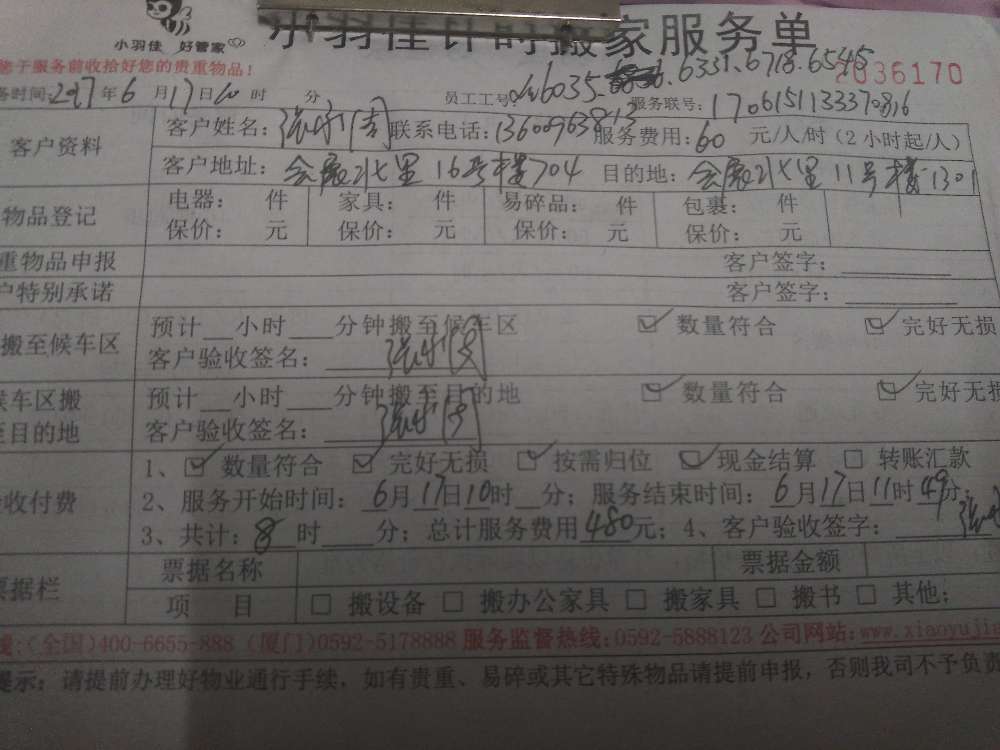 小羽佳 好管家
小羽佳计时搬家服务单
您于服务前收拾好您的贵重物品!
2036170
务时间:2017年6月17日10时 分 员工工号: 6035 6331.6718.6545 服务联号: 1706151133370816
客户资料 客户姓名: 联系电话: 服务费用:60 元/人/时(2小时起/人)
客户地址: 会展北七里16号楼704 目的地: 会展北七里11号楼1301
物品登记 电器: 件 家具: 件 易碎品: 件 包裹: 件
保价: 元 保价: 元 保价: 元 保价: 元
重物品申报 客户签字:
户特别承诺 客户签字:
搬至候车区 预计__小时___分钟搬至候车区 ☑ 数量符合 ☑ 完好无损
客户验收签名:
候车区搬至目的地 预计__小时___分钟搬至目的地 ☑ 数量符合 ☑ 完好无损
客户验收签名:
验收付费 1、☑ 数量符合 ☑ 完好无损 ☑ 按需归位 ☑ 现金结算 □ 转账汇款
2、服务开始时间: 6月17日10时__分; 服务结束时间: 6月17日11时49分;
3、共计: 8 时____分; 总计服务费用480元; 4、客户验收签字:
票据栏 票据名称 票据金额
项 目 □ 搬设备 □ 搬办公家具 □ 搬家具 □ 搬书 □ 其他;
(全国)400-6655-888 (厦门)0592-5178888 服务监督热线:0592-5888123 公司网站:www.xiaoyujia
提示: 请提前办理好物业通行手续, 如有贵重、易碎或其它特殊物品请提前申报, 否则我司不予负责